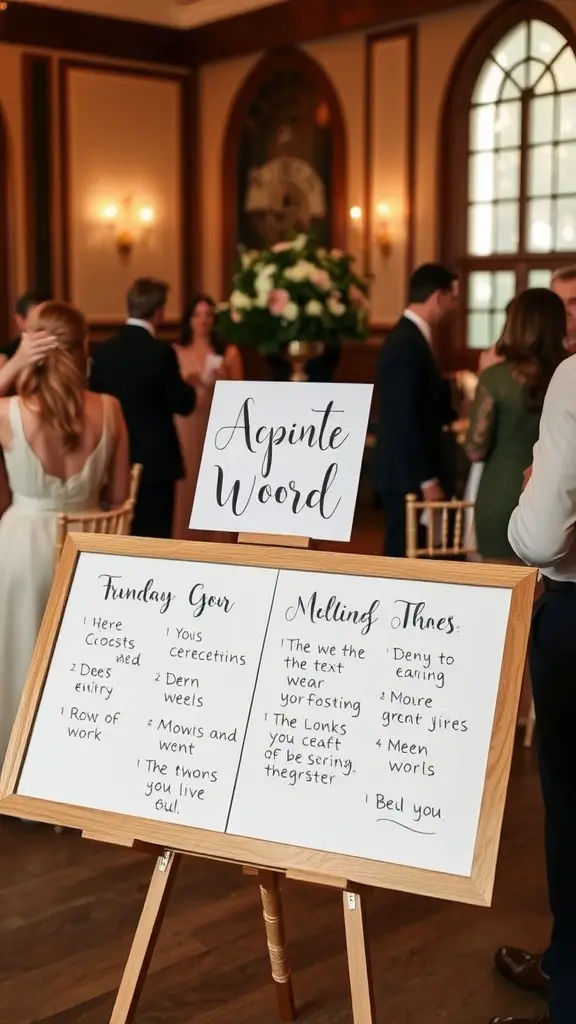 Acpinte
Woord
Funday Gour
1 Here
Crocsts
wed
2 Dees
enitry
1 Row of
work
1 Yous
cerecetnins
2 Dern
weels
2 Mowis and
went
1 The twons
you live
out.
Mellinf Thnes.
1 The we the
the text
wear
yorfosting
1 The Lonks
you ceaft
of be sering.
thegrster
1 Deny to
earling
2 Moure
great jires
4 Meen
worls
1 Bed you